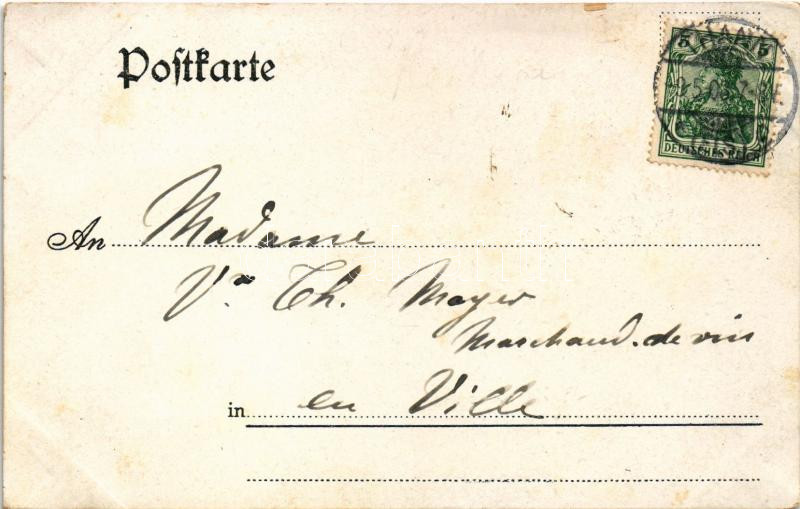 Postkarte
5 5
DEUTSCHES REICH
An Madame
Vve Th. Mayer
Marchand. de vin
in en Ville